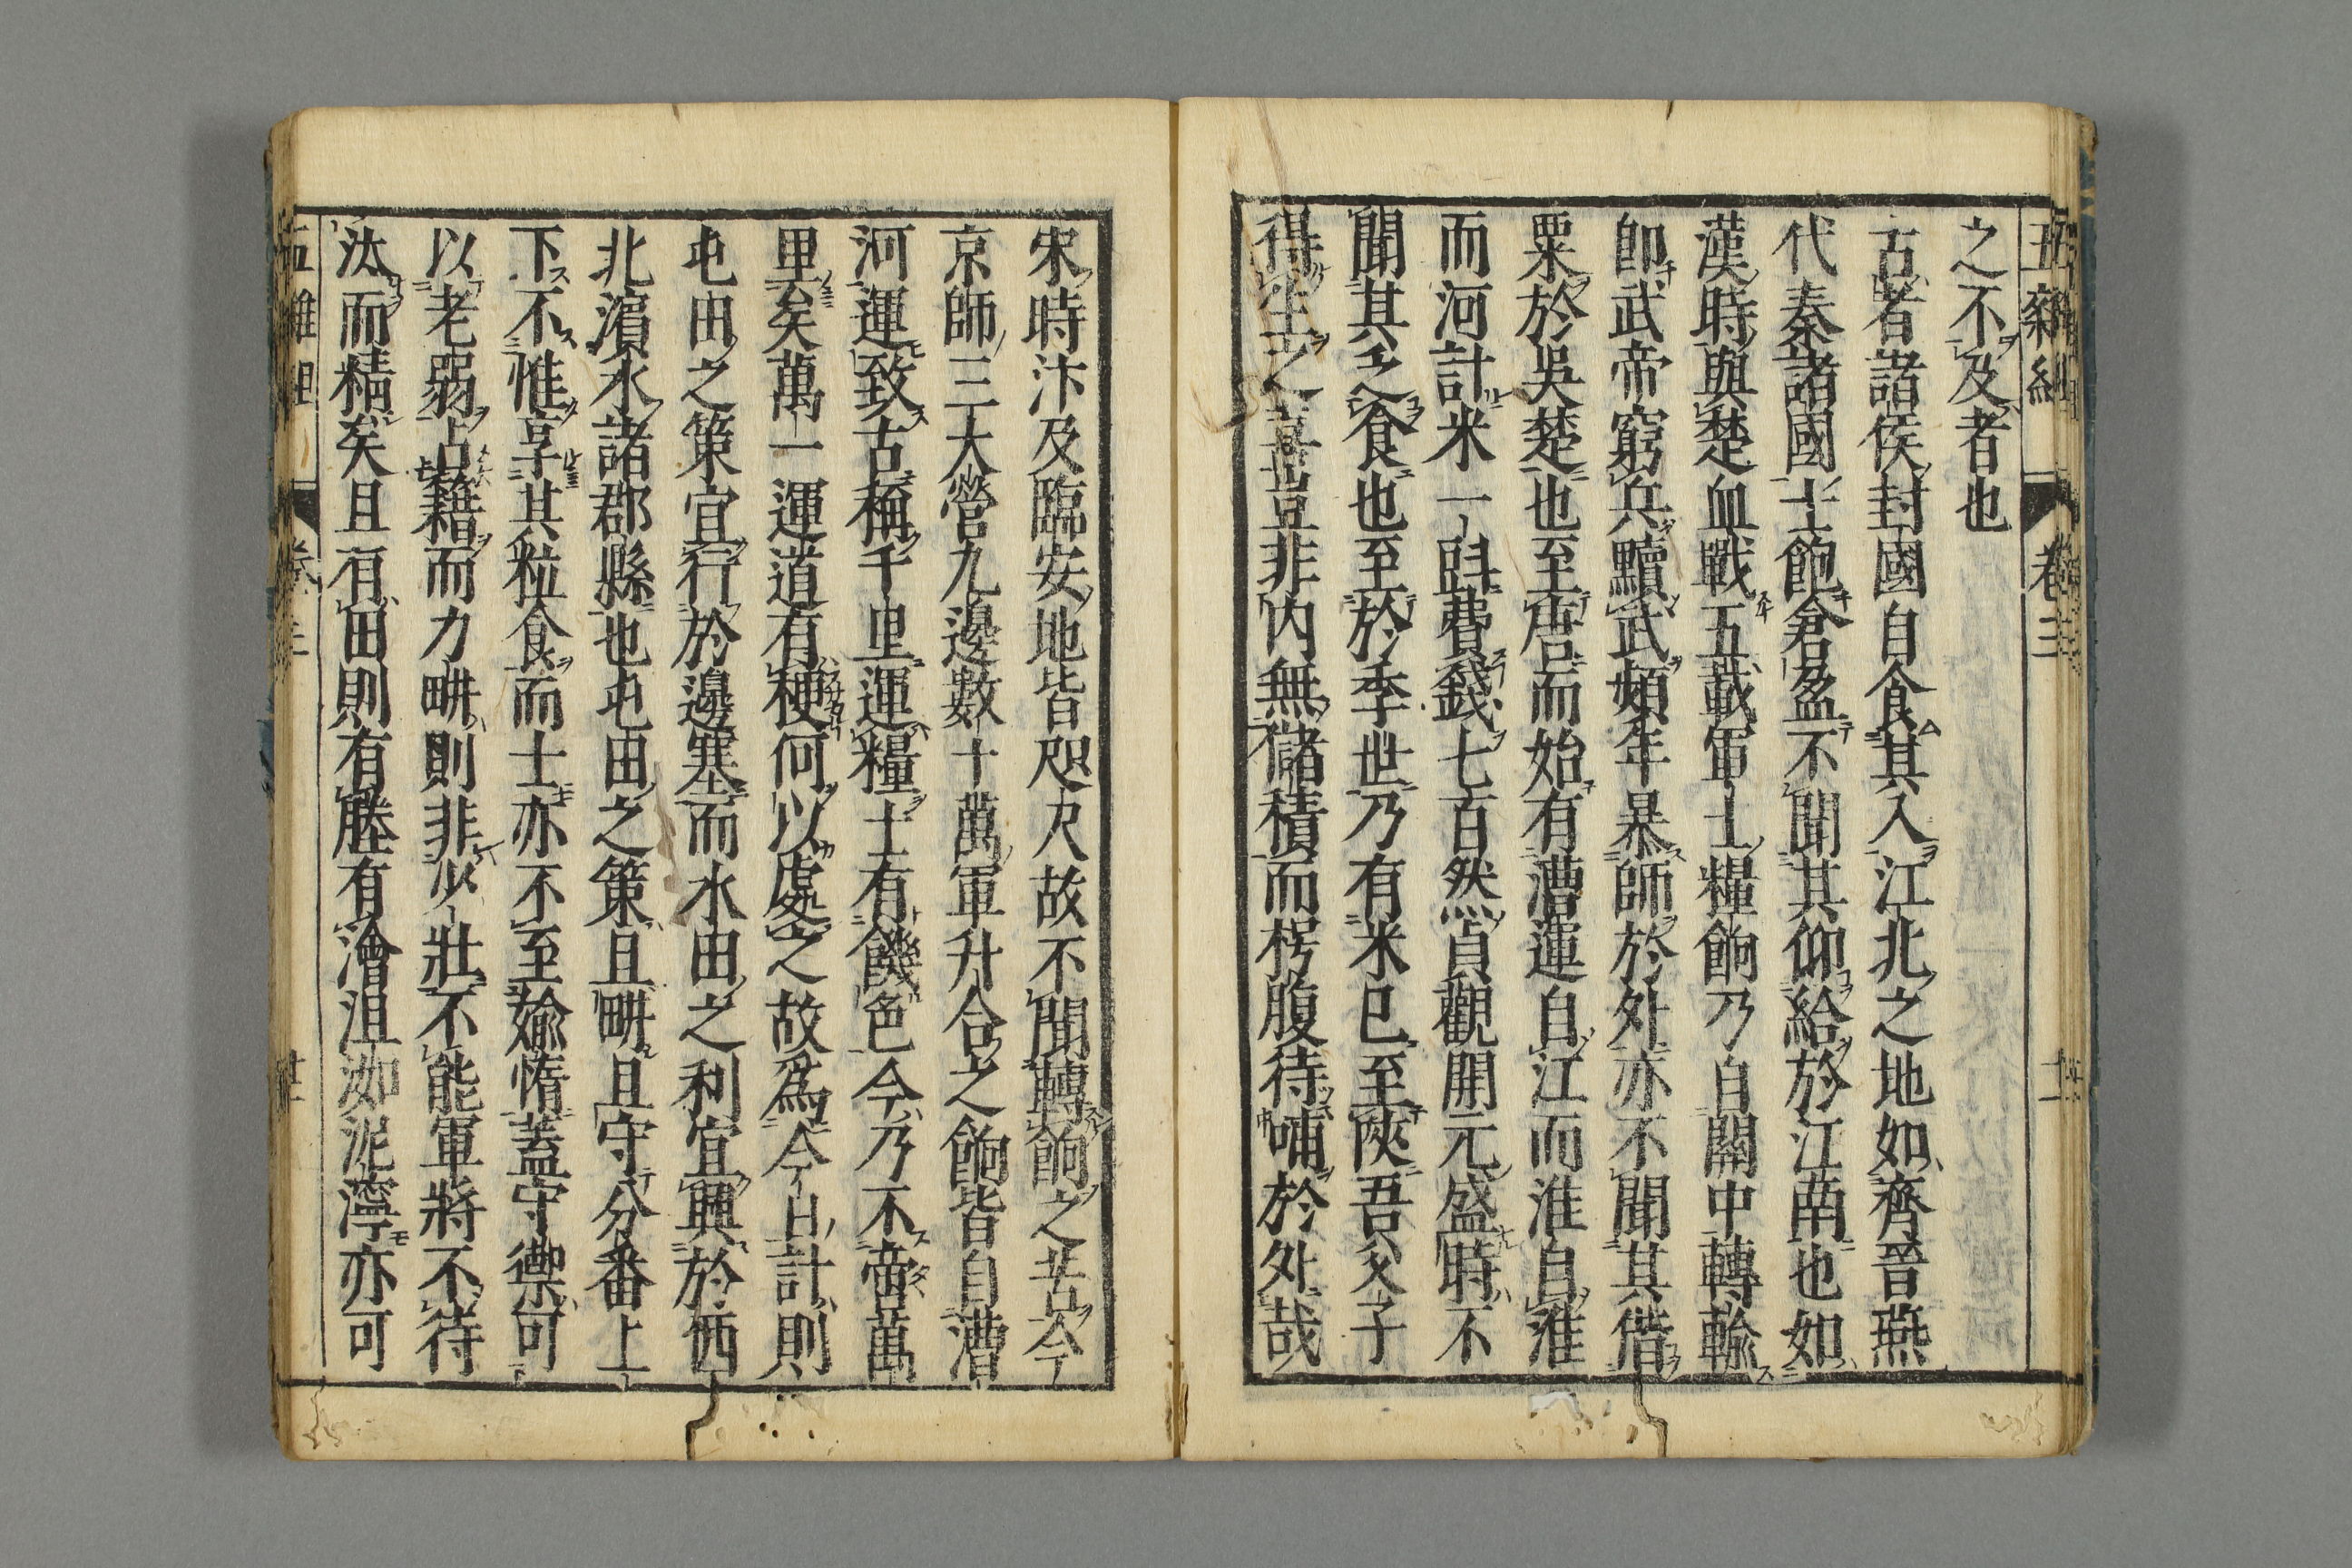 之不及者也
古者諸侯封國自食其入江北之地如齊晉燕
代秦諸國士飽倉盈不聞其仰給於江南也如
漢時與楚血戰五載軍士糧餉乃自關中轉輸
卽武帝窮兵黷武頻年暴師於外亦不聞其借
粟於吳楚也至唐而始有漕運自江而淮自淮
而河計米一㪷費錢七百然貞觀開元盛時不
聞其乏食也至於季世乃有米已至陝吾父子
得生之喜豈非内無儲積而枵腹待哺於外哉
宋時汴及臨安地皆咫尺故不聞轉餉之苦今
京師三大營九邊數十萬軍升合之餉皆自漕
河運致古稱千里運糧士有饑色今乃不啻萬
里矣萬一運道有梗何以處之故爲今日計則
屯田之策宜行於邊塞而水田之利宜興於西
北濵水諸郡縣也屯田之策且畊且守分番上
下不惟享其粒食而士亦不至媮惰蓋守禦可
以老弱占籍而力畊則非少壯不能軍將不待
汰而精矣且有田則有塍有澮沮洳泥濘亦可